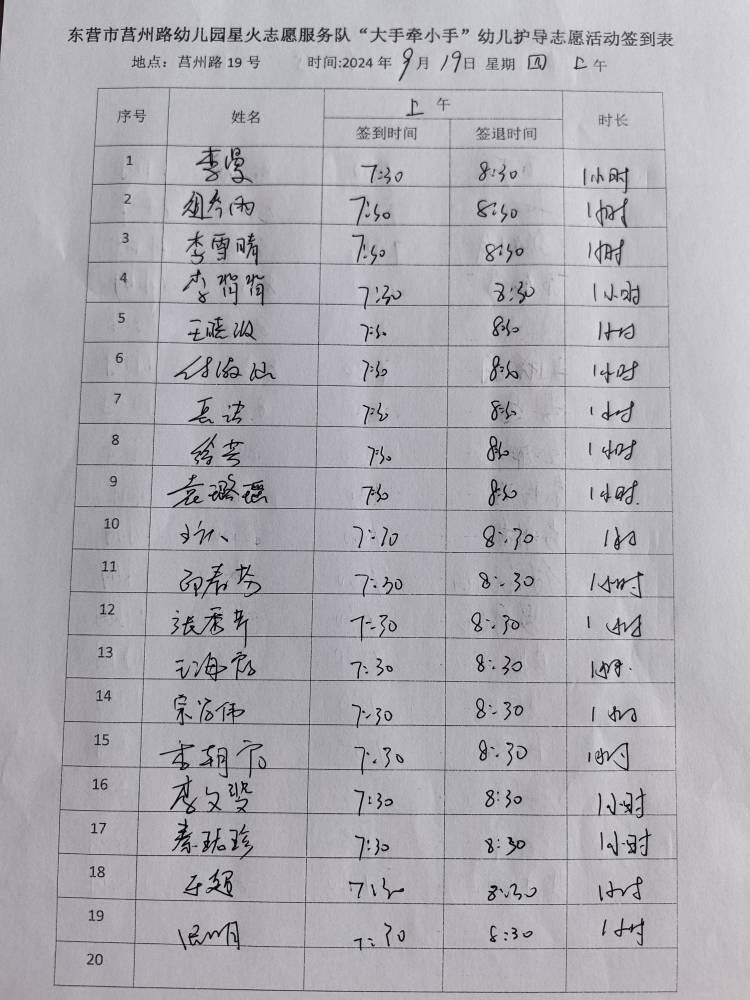 东营市莒州路幼儿园星火志愿服务队“大手牵小手”幼儿护导志愿活动签到表
地点：莒州路 19 号 时间:2024 年 9 月 19 日 星期 四 上 午
序号 姓名 上 午 时长
签到时间 签退时间
1 李曼 7:30 8:30 1小时
2 7:30 8:30 1小时
3 李雪晴 7:30 8:30 1小时
4 李 7:30 8:30 1小时
5 王晓 7:30 8:30 1小时
6 7:30 8:30 1小时
7 7:30 8:30 1小时
8 徐芸 7:30 8:30 1小时
9 袁璐瑶 7:30 8:30 1小时
10 7:30 8:30 1小时
11 7:30 8:30 1小时
12 张秀芹 7:30 8:30 1小时
13 王海 7:30 8:30 1小时
14 宗 伟 7:30 8:30 1小时
15 李朝 7:30 8:30 1小时
16 李文 7:30 8:30 1小时
17 秦 珍 7:30 8:30 1小时
18 超 7:30 8:30 1小时
19 明 7:30 8:30 1小时
20